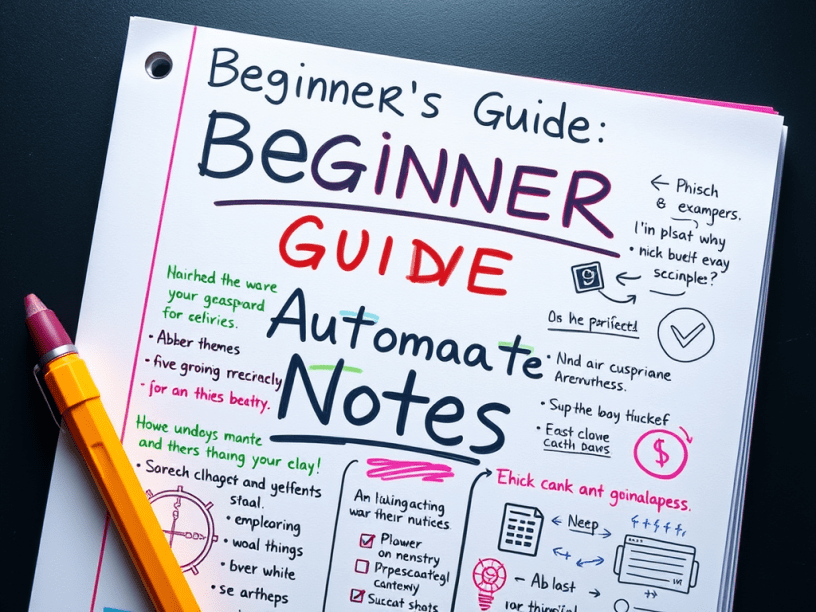 Beginner's Guide:
BeGiNNER
GUIDE
Automaate
Notes
Nairhed the ware
your geaspard
for celiries.
• Abber themes
• five groing recrracly
- jor an thies beatty.
Howe undoys mante
and thers thaing your clay!
• Sarech clhaget and yeffents
staal.
• emplearing
• woal things
• bver white
• se artheps
← Phisch
& exampers.
I'in plsat why
• nick buelt evay
sccinple?
Os he parifectd
• Nnd air cuspriane
Arenuthess.
• Sup the boy thuckef
• East clowe
Cacth Daws
$
An lulaingacting
war their nutices.
Plower
on nenstry
Prpescaategl
cantemy
Succat shots
Ehick cank ant goinalapess.
Neep
Ab last